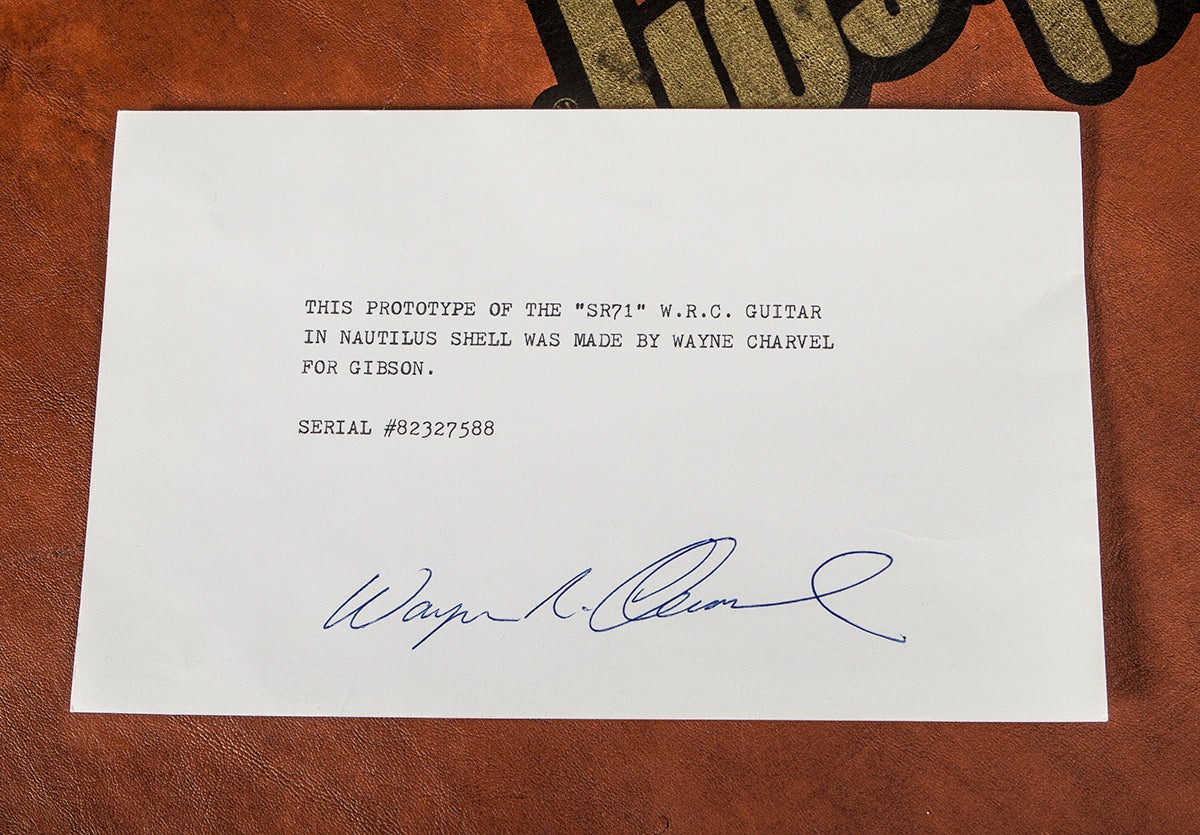 THIS PROTOTYPE OF THE "SR71" W.R.C. GUITAR
IN NAUTILUS SHELL WAS MADE BY WAYNE CHARVEL
FOR GIBSON.
SERIAL #82327588
Wayne R. Charvel